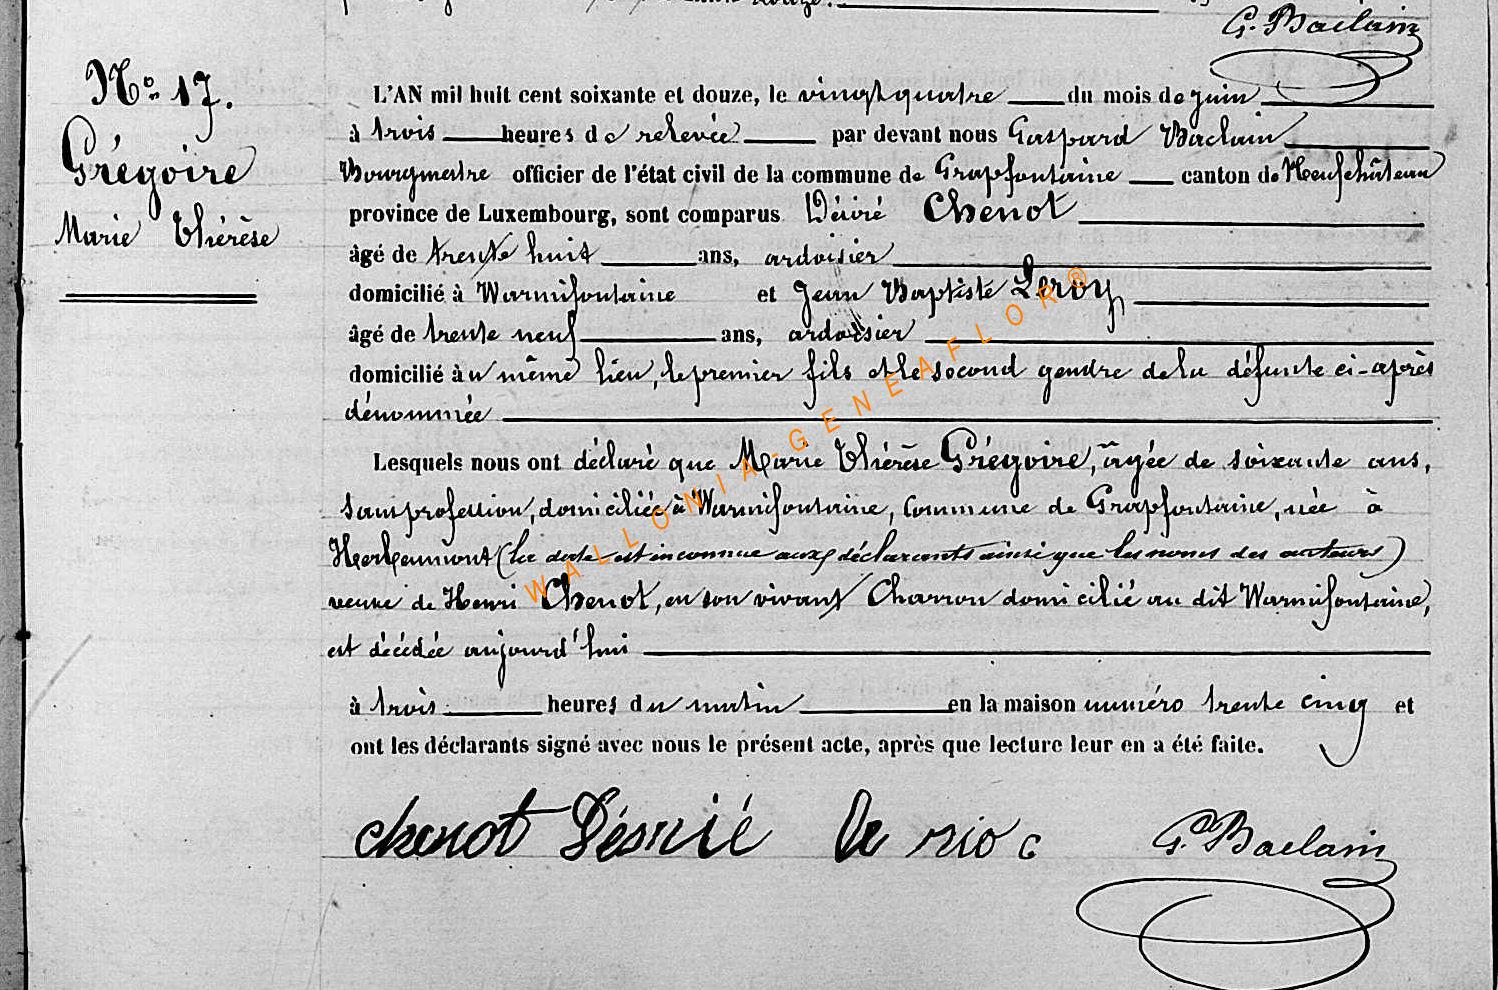 G. Baclain
N° 17.
Grégoire
Marie Thérèse
L'AN mil huit cent soixante et douze, le vingt quatre du mois de juin
à trois heures de relevée par devant nous Gaspard Baclain
Bourgmestre officier de l'état civil de la commune de Grapfontaine canton de Neufchâteau
province de Luxembourg, sont comparus Désiré Chenot
âgé de trente huit ans, ardoisier
domicilié à Warmifontaine et Jean Baptiste Leroy
âgé de trente neuf ans, ardoisier
domicilié à u même lieu, le premier fils et le second gendre de la défunte ci-après
dénommée
Lesquels nous ont déclaré que Marie Thérèse Grégoire, âgée de soixante ans,
sans profession, domiciliée à Warmifontaine, Commune de Grapfontaine, née à
Herbeumont (la date est inconnue aux déclarants ainsi que les noms des auteurs)
veuve de Henri Chenot, en son vivant Charron domicilié au dit Warmifontaine,
est décédée aujourd'hui
à trois heures du matin en la maison numéro trente cinq et
ont les déclarants signé avec nous le présent acte, après que lecture leur en a été faite.
chenot Désirié G. Baclain
WALLONIA-GENEAFLOR®